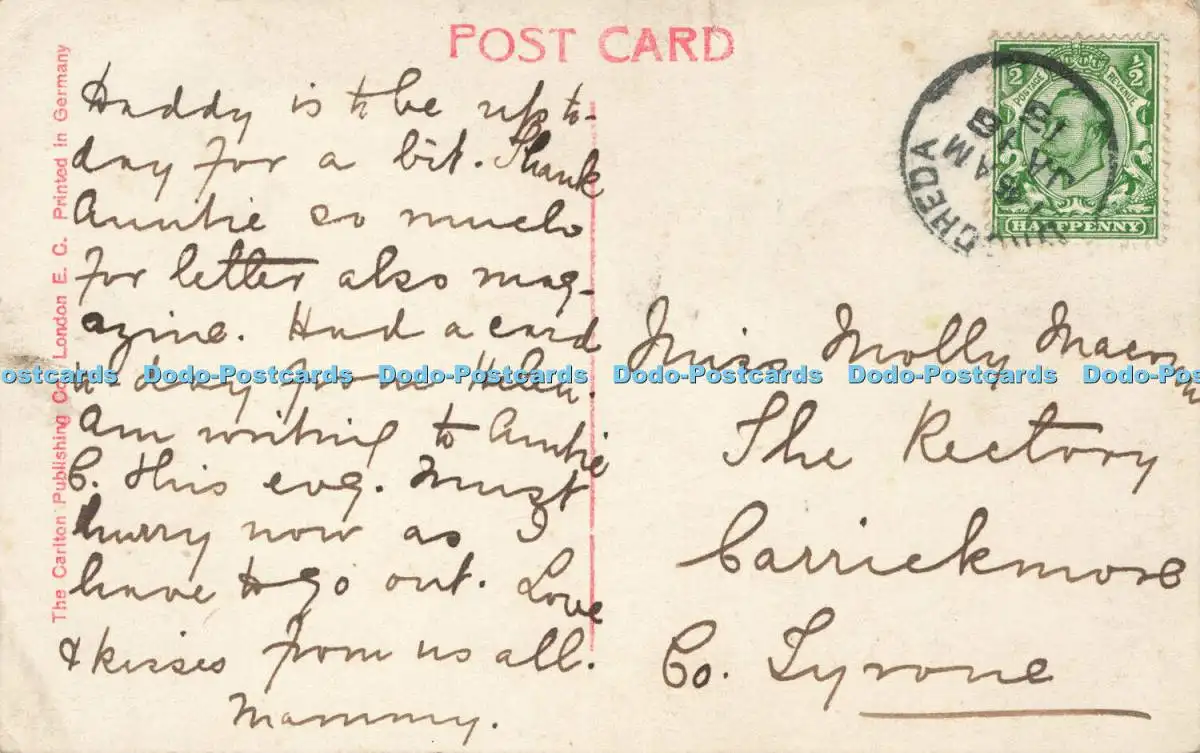 POST CARD
The Carlton Publishing Co. London E. C. Printed in Germany
Haddy is to be up to-
day for a bit. Thank
Auntie so much
for letter also mag-
azine. Had a card
to day from
Am writing to Auntie
C. this evg. Must
hurry now as I
have to go out. Love
& kisses from us all.
Mammy.
½ ½
POSTAGE REVENUE
HALFPENNY
JA 18
Miss Molly
The Rectory
Carrickmore
Co. Tyrone
Dodo-Postcards Dodo-Postcards Dodo-Postcards Dodo-Postcards